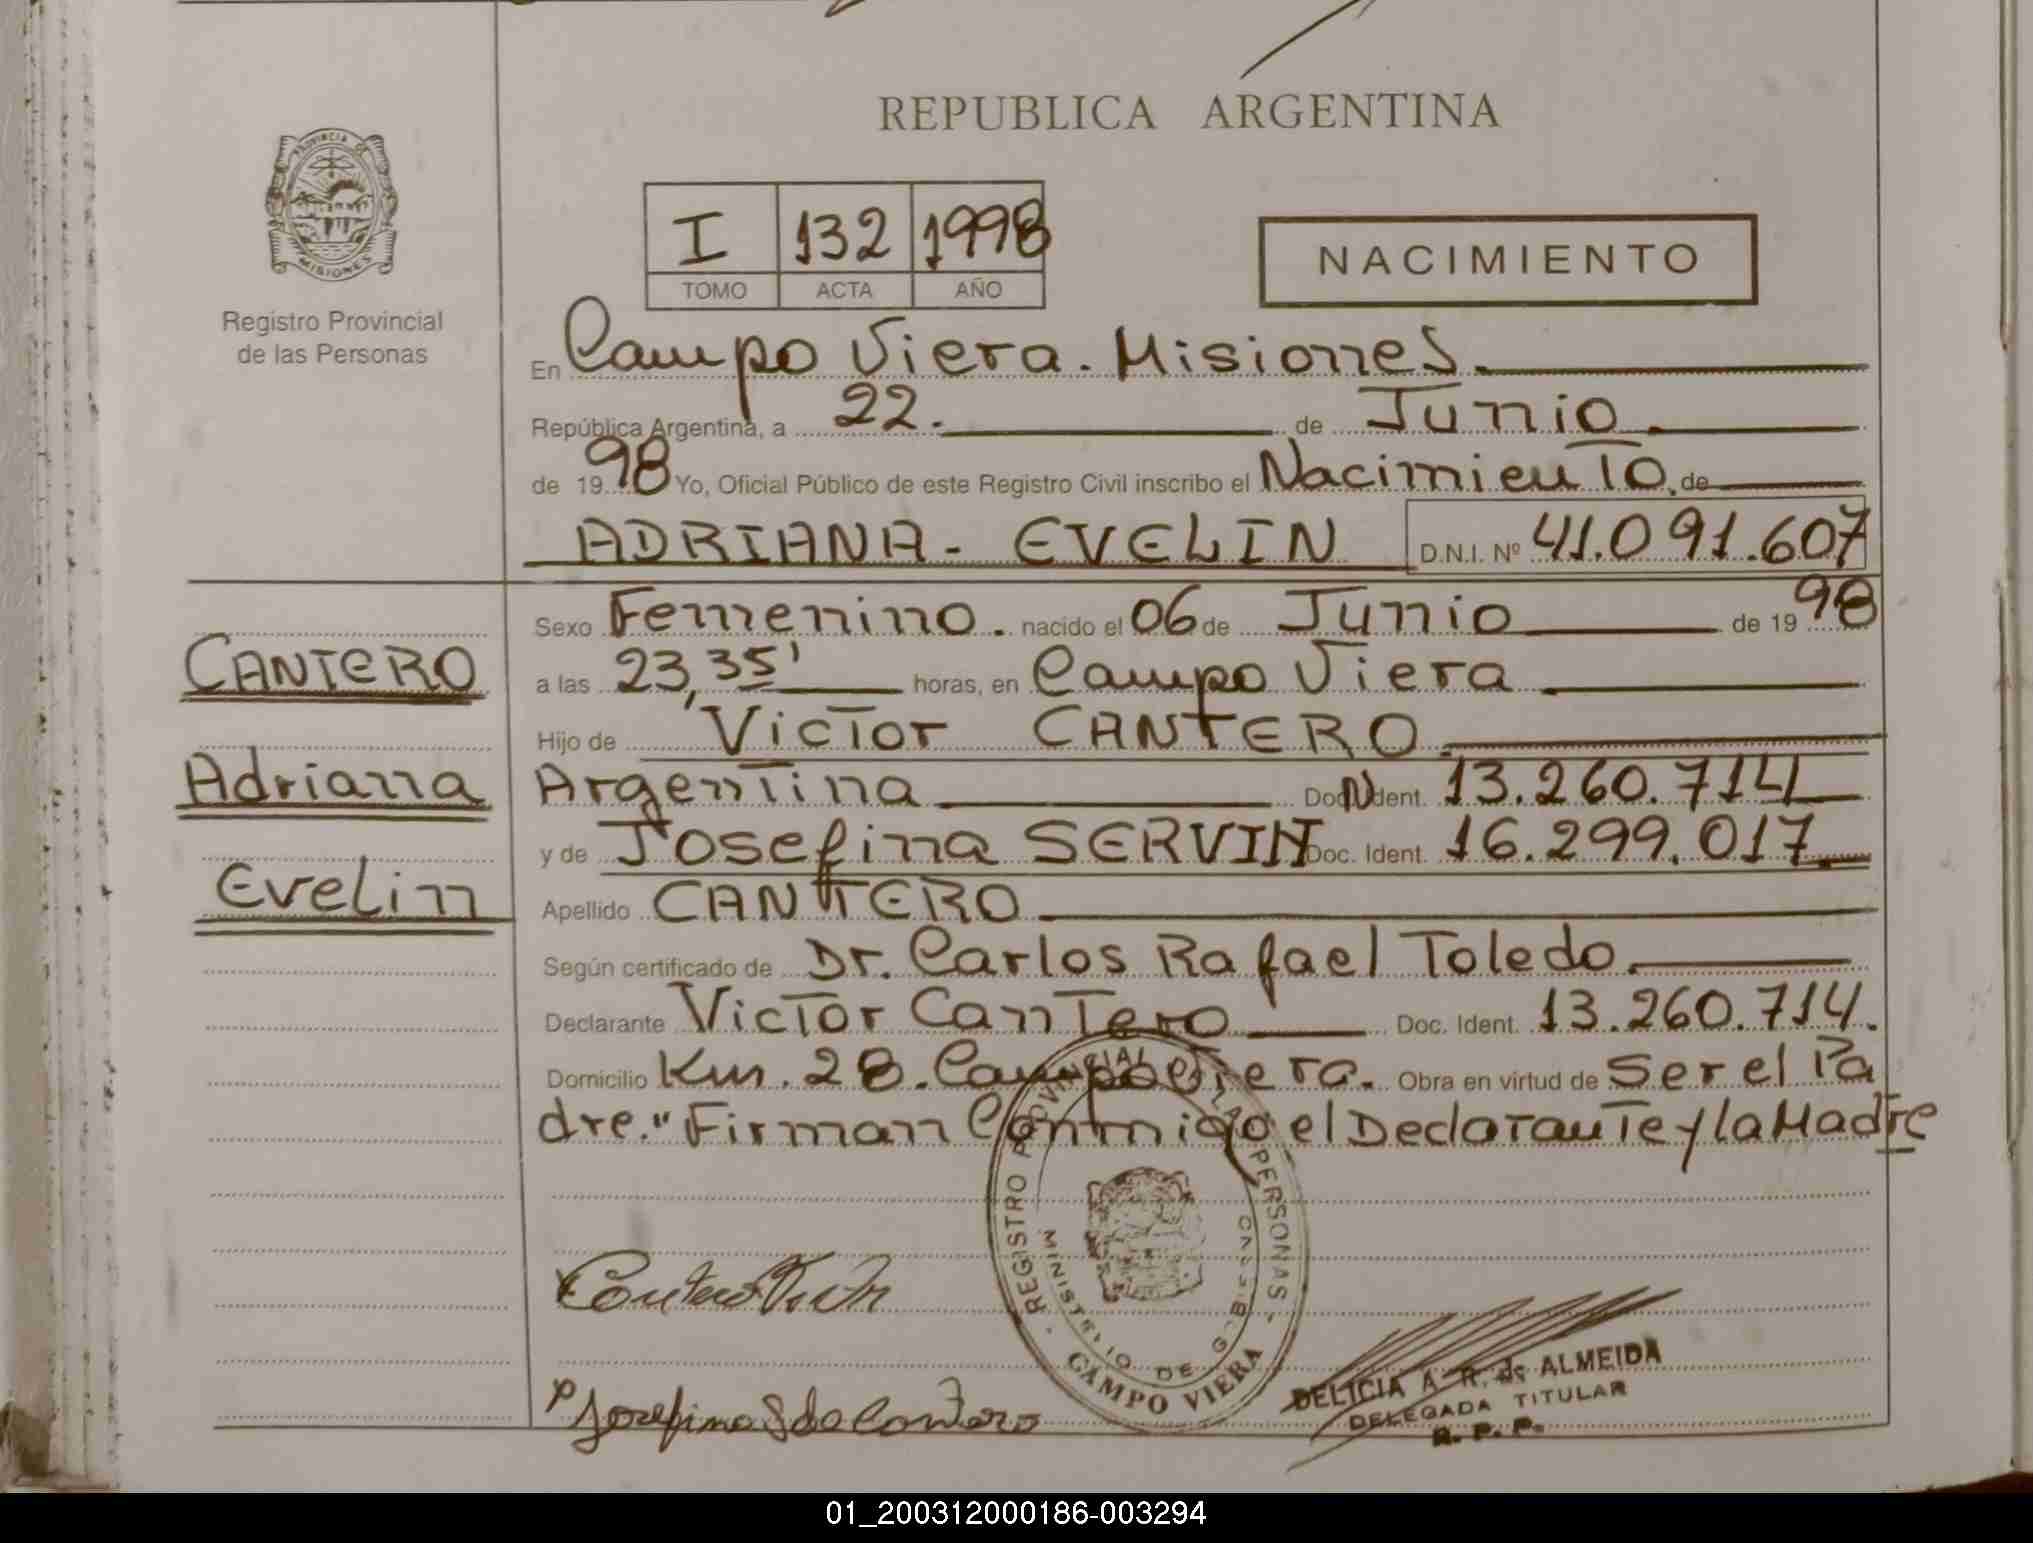 REPUBLICA ARGENTINA
PROVINCIA DE
MISIONES
Registro Provincial
de las Personas
I 132 1998
TOMO ACTA AÑO
NACIMIENTO
En Campo Viera. Misiones.
República Argentina, a 22. de Junio.
de 1998 Yo, Oficial Público de este Registro Civil inscribo el Nacimiento, de
ADRIANA - EVELIN D.N.I. Nº 41.091.607
CANTERO
Adriana
Evelin
Sexo Femenino. nacido el 06 de Junio de 1998
a las 23,35' horas, en Campo Viera
Hijo de Victor CANTERO.
Argentina Doc. Ident. N 13.260.714
y de Josefina SERVIN Doc. Ident. 16.299.017
Apellido CANTERO
Según certificado de Dr. Carlos Rafael Toledo.
Declarante Victor Cantero Doc. Ident. 13.260.714.
Domicilio Km. 28. Campo Viera. Obra en virtud de Ser el Pa
dre." Firman Conmigo el Declarante y la Madre
REGISTRO PROVINCIAL DE LAS PERSONAS
MINISTERIO DE GOBIERNO
CAMPO VIERA
Cantero Victor
Josefina S de Cantero
DELICIA A. R. de ALMEIDA
DELEGADA TITULAR
R. P. P.
01_200312000186-003294